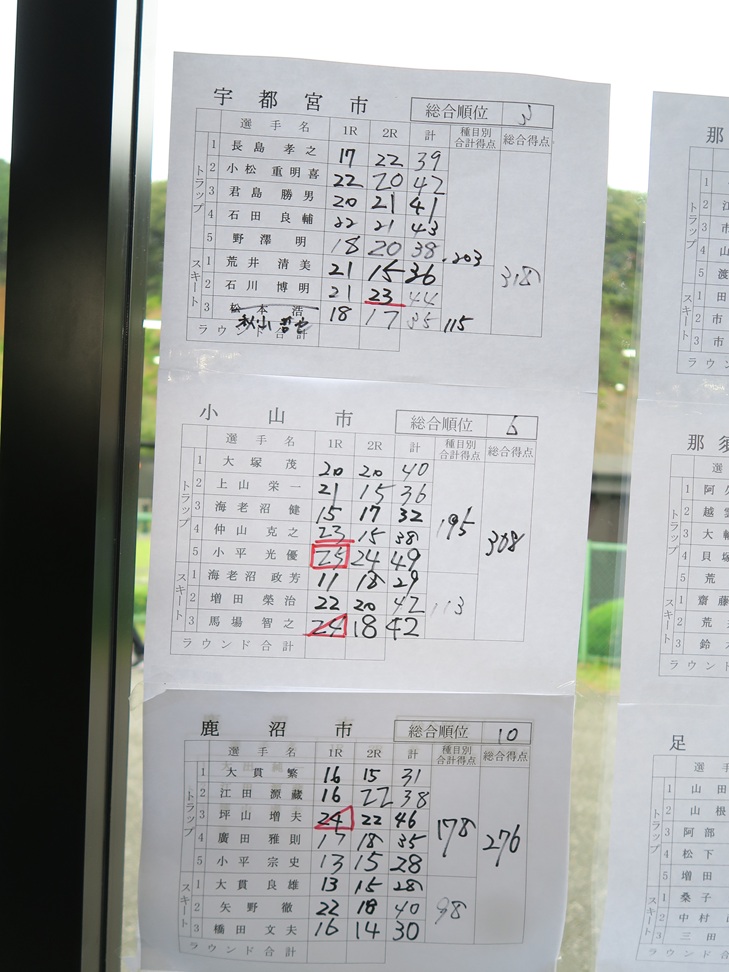 宇都宮市 総合順位 3
選手名 1R 2R 計 種目別合計得点 総合得点
トラップ
1 長島 孝之 17 22 39
2 小松 重明喜 22 20 42
3 君島 勝男 20 21 41
4 石田 良輔 22 21 43
5 野澤 明 18 20 38 203
スキート
1 荒井 清美 21 15 36 318
2 石川 博明 21 23 44
3 松本 浩 18 17 35 115
ラウンド合計
小山市 総合順位 6
選手名 1R 2R 計 種目別合計得点 総合得点
トラップ
1 大塚 茂 20 20 40
2 上山 栄一 21 15 36
3 海老沼 健 15 17 32 195
4 仲山 克之 23 15 38 308
5 小平 光優 25 24 49
スキート
1 海老沼 政芳 11 18 29
2 増田 榮治 22 20 42 113
3 馬場 智之 24 18 42
ラウンド合計
鹿沼市 総合順位 10
選手名 1R 2R 計 種目別合計得点 総合得点
トラップ
1 大貫 繁 16 15 31
2 江田 源蔵 16 22 38
3 坪山 増夫 24 22 46 178
4 廣田 雅則 17 18 35 276
5 小平 宗史 13 15 28
スキート
1 大貫 良雄 13 15 28
2 矢野 徹 22 18 40 98
3 橋田 文夫 16 14 30
ラウンド合計
那
トラップ
1
2 江
3 市
4 山
5 渡
スキート
1 田
2 市
3 市
ラウン
那須
選
トラップ
1 阿久
2 越雲
3 大輔
4 貝塚
5 荒
スキート
1 齋藤
2 荒
3 鈴木
ラウンド
足
選手
トラップ
1 山田
2 山根
3 阿部
4 松下
5 増田
スキート
1 桑子
2 中村
3 三田
ラウンド